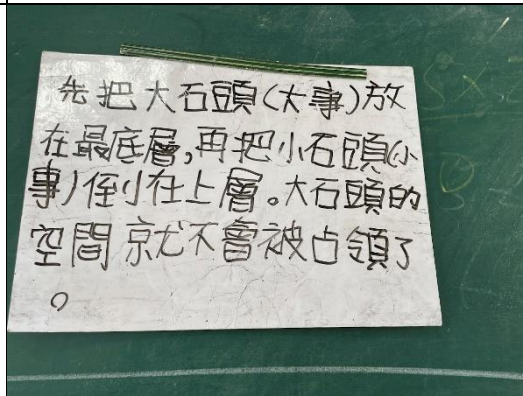 先把大石頭(大事)放
在最底層,再把小石頭(小
事)倒在上層。大石頭的
空間就不會被占領了
。